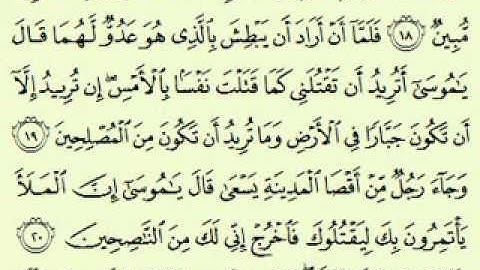 مُّبِينٌ ١٨ فَلَمَّآ أَنْ أَرَادَ أَن يَبْطِشَ بِٱلَّذِى هُوَ عَدُوٌّ لَّهُمَا قَالَ
يَٰمُوسَىٰٓ أَتُرِيدُ أَن تَقْتُلَنِى كَمَا قَتَلْتَ نَفْسًۢا بِٱلْأَمْسِ ۖ إِن تُرِيدُ إِلَّآ
أَن تَكُونَ جَبَّارًا فِى ٱلْأَرْضِ وَمَا تُرِيدُ أَن تَكُونَ مِنَ ٱلْمُصْلِحِينَ ١٩
وَجَآءَ رَجُلٌ مِّنْ أَقْصَا ٱلْمَدِينَةِ يَسْعَىٰ قَالَ يَٰمُوسَىٰٓ إِنَّ ٱلْمَلَأَ
يَأْتَمِرُونَ بِكَ لِيَقْتُلُوكَ فَٱخْرُجْ إِنِّى لَكَ مِنَ ٱلنَّٰصِحِينَ ٢٠